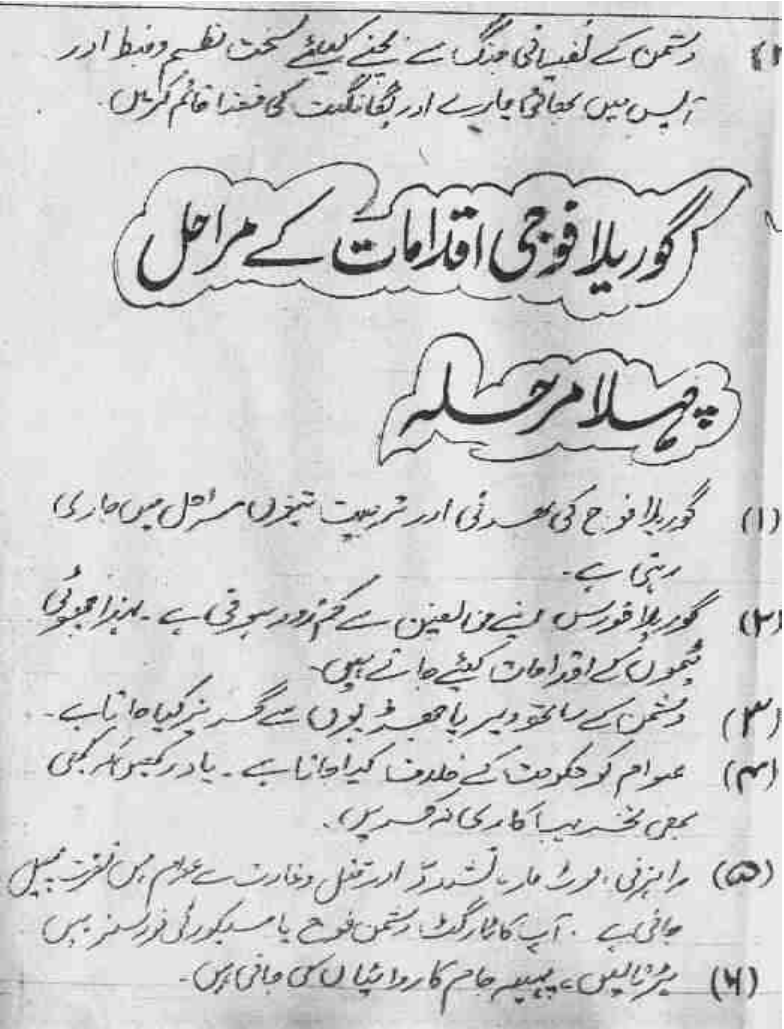 دشمن کے نفسیاتی جنگ سے بچنے کیلئے سخت نظم و ضبط اور
آپس میں بھائی چارے اور یگانگت کی فضا قائم کریں۔
گوریلا فوجی اقدامات کے مراحل
پہلا مرحلہ
(۱) گوریلا فوج کی بھرتی اور تربیت تینوں مراحل میں جاری
رہتی ہے۔
(۲) گوریلا فورس اپنے مخالفین سے کمزور ہوتی ہے۔ لہٰذا چھوٹی
ٹیموں کے اقدامات کیئے جاتے ہیں۔
(۳) دشمن کے ساتھ دیرپا جھڑپوں سے گریز کیا جاتا ہے۔
(۴) عوام کو حکومت کے خلاف کیا جاتا ہے۔ یاد رکھیں کہ کبھی
بھی تخریب کاری نہ کریں۔
(۵) راہزنی، لوٹ مار، تشدد اور قتل و غارت سے عوام میں نفرت پھیل
جاتی ہے۔ آپ کا ٹارگٹ دشمن فوج یا سیکورٹی فورسز ہیں
(۶) ہڑتالیں، پہیہ جام کاروائیاں کی جاتی ہیں۔